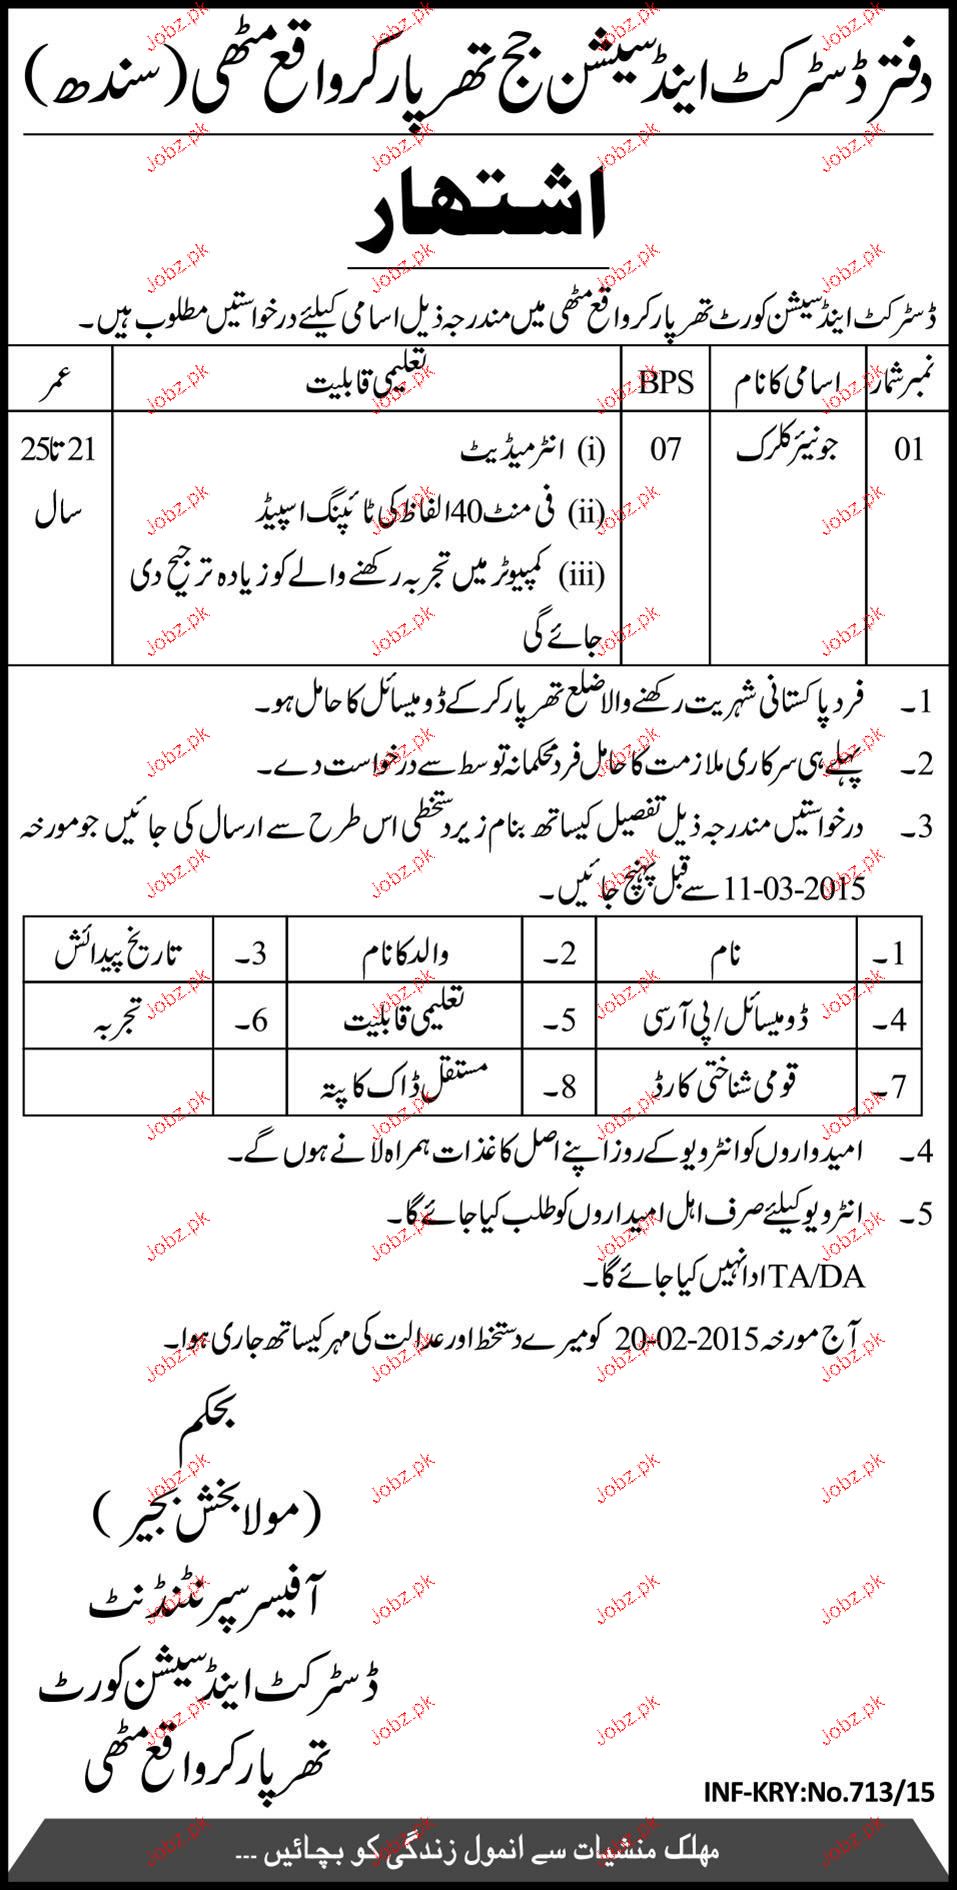 دفتر ڈسٹرکٹ اینڈ سیشن جج تھرپارکر واقع مٹھی (سندھ)
اشتھار
ڈسٹرکٹ اینڈ سیشن کورٹ تھرپارکر واقع مٹھی میں مندرجہ ذیل اسامی کیلئے درخواستیں مطلوب ہیں۔
نمبر شمار اسامی کا نام BPS تعلیمی قابلیت عمر
01 جونیئر کلرک 07 (i) انٹرمیڈیٹ 21 تا 25
(ii) فی منٹ 40 الفاظ کی ٹائپنگ اسپیڈ سال
(iii) کمپیوٹر میں تجربہ رکھنے والے کو زیادہ ترجیح دی
جائے گی
1۔ فرد پاکستانی شہریت رکھنے والا ضلع تھرپارکر کے ڈومیسائل کا حامل ہو۔
2۔ پہلے ہی سرکاری ملازمت کا حامل فرد محکمانہ توسط سے درخواست دے۔
3۔ درخواستیں مندرجہ ذیل تفصیل کیساتھ بنام زیر دستخطی اس طرح سے ارسال کی جائیں جو مورخہ
11-03-2015 سے قبل پہنچ جائیں۔
1۔ نام 2۔ والد کا نام 3۔ تاریخ پیدائش
4۔ ڈومیسائل/پی آر سی 5۔ تعلیمی قابلیت 6۔ تجربہ
7۔ قومی شناختی کارڈ 8۔ مستقل ڈاک کا پتہ
4۔ امیدواروں کو انٹرویو کے روز اپنے اصل کاغذات ہمراہ لانے ہوں گے۔
5۔ انٹرویو کیلئے صرف اہل امیداروں کو طلب کیا جائے گا۔
TA/DA ادا نہیں کیا جائے گا۔
آج مورخہ 20-02-2015 کو میرے دستخط اور عدالت کی مہر کیساتھ جاری ہوا۔
بحکم
(مولا بخش بجیر)
آفیسر سپرنٹنڈنٹ
ڈسٹرکٹ اینڈ سیشن کورٹ
تھرپارکر واقع مٹھی
INF-KRY:No.713/15
مھلک منشیات سے انمول زندگی کو بچائیں ...
Jobz.pk